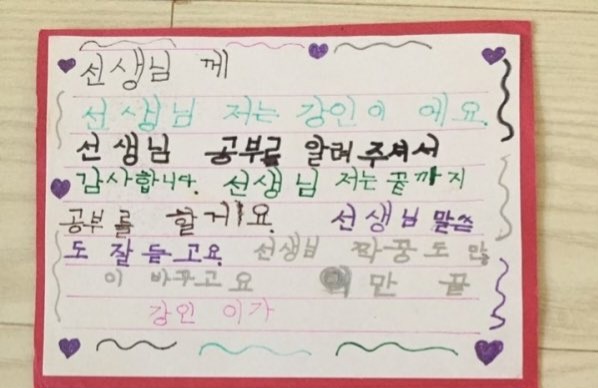 선생님 께
선생님 저는 강인이 에요.
선생님 공부를 알려 주셔서
감사합니다. 선생님 저는 끝까지
공부를 할게요. 선생님 말씀
도 잘 듣고요. 선생님 짝꿍도 많
이 바꾸고요 만 끝
강인 이가